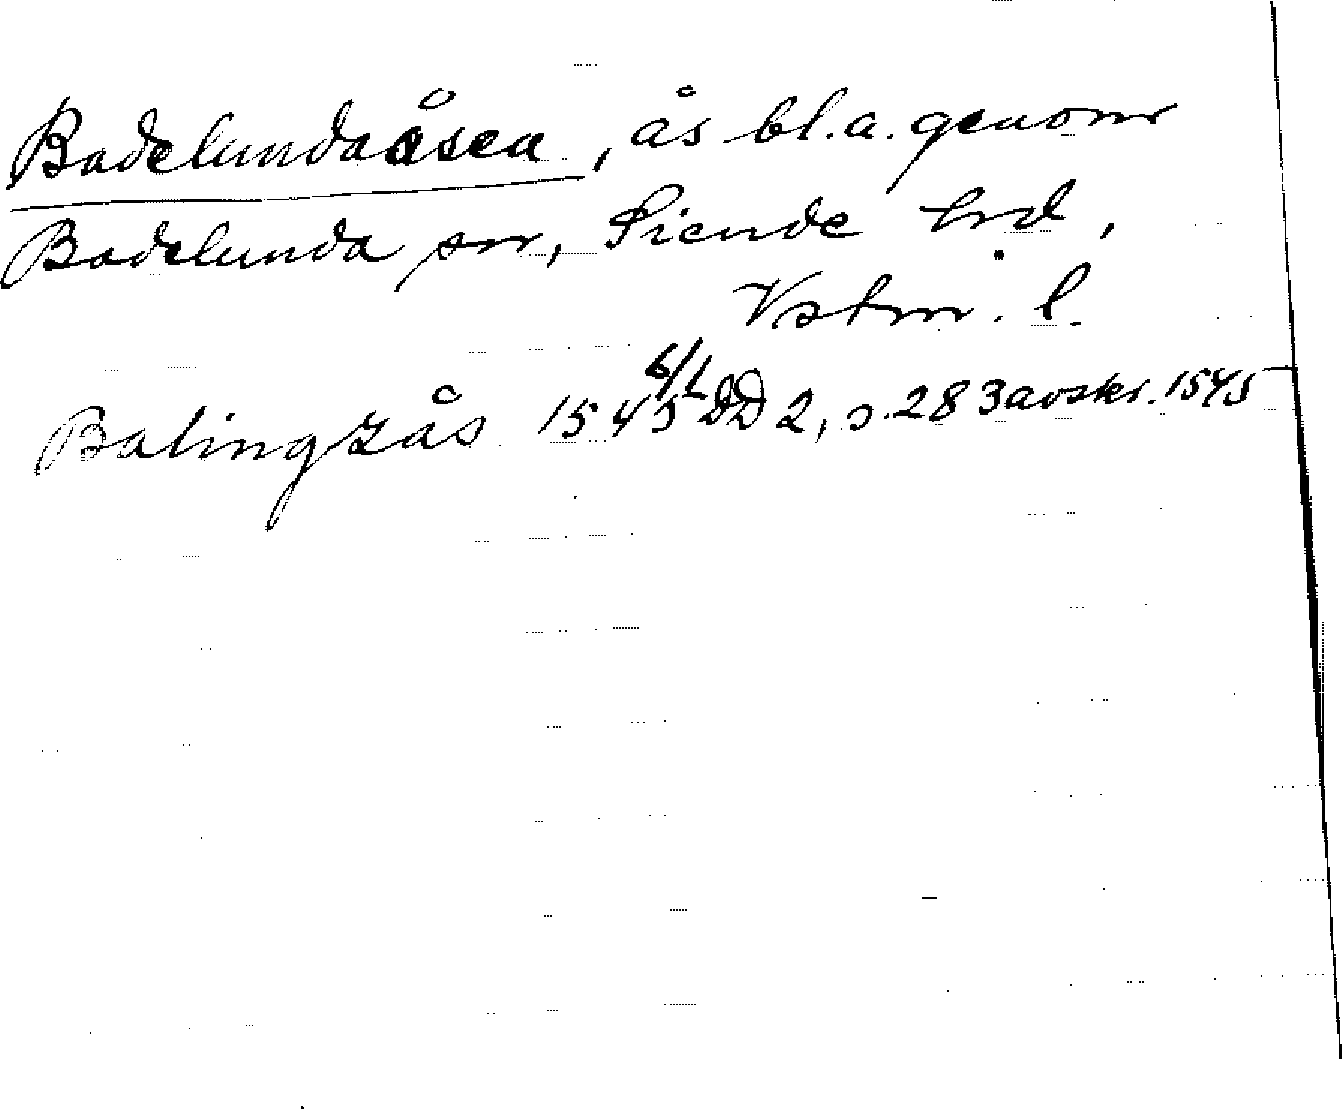 Badelundaåsen, ås bl.a. genom
Badelunda sn, Siende hd,
Vstm. l.
Balingzås 1545 6/1 DD 2, s. 283 avskr. 1545